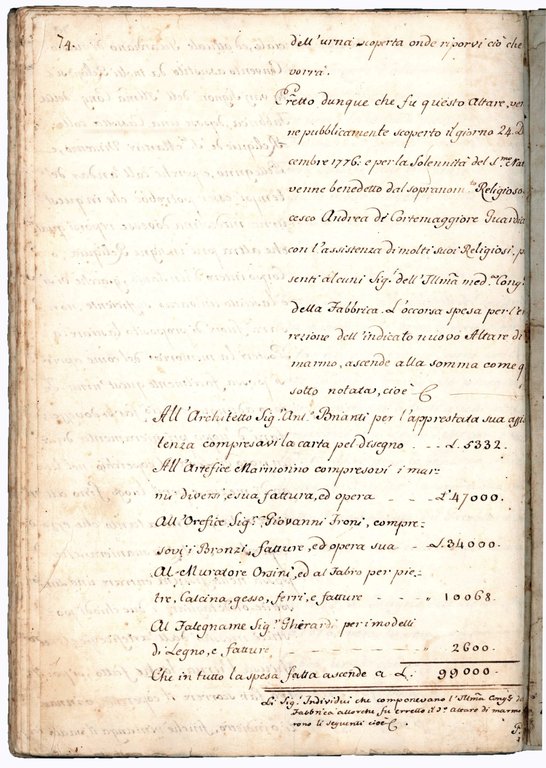 74.
dell'urna scoperta onde riporvi ciò che
vorrà.
Eretto dunque che fu questo Altare, ven
ne pubblicamente scoperto il giorno 24. D
cembre 1776. e per la Solennità del S.mo Na
venne benedetto dal sopranom.to Religioso
cesco Andrea di Cortemaggiore Guardia
con l'assistenza di molti suoi Religiosi, p
senti alcuni Sig.i dell'Illma med.a Cong.e
della Fabbrica. L'occorsa spesa per l'e
rezione dell'indicato nuovo Altare di
marmo, ascende alla somma come q
sotto notata, cioè
All'Architetto Sig.r Ant.o Bnanti per l'apprestata sua assi
tenza compresavi la carta pel disegno - - £. 5332.
All'Artefice Marmorino compresovi i mar-
mi diversi, e sua fattura, ed opera - - - £. 47000.
All'Orefice Sig.r Giovanni Froni, compre-
sovi i Bronzi, fatture, ed opera sua - £. 34000.
Al Muratore Orsini, ed al Fabro per pie-
tre, Calcina, gesso, ferri, e fatture - - - " 10068.
Al Falegname Sig.r Ghierardi per i modelli
di Legno, e fatture - - - " 2600.
Che in tutto la spesa fatta ascende a £. 99000.
Li Sig.i Individui che componevano l'Illma Cong.e da
Fabbrica allorchè fu erretto il d.o Altare di marmo
rono li seguenti cioè